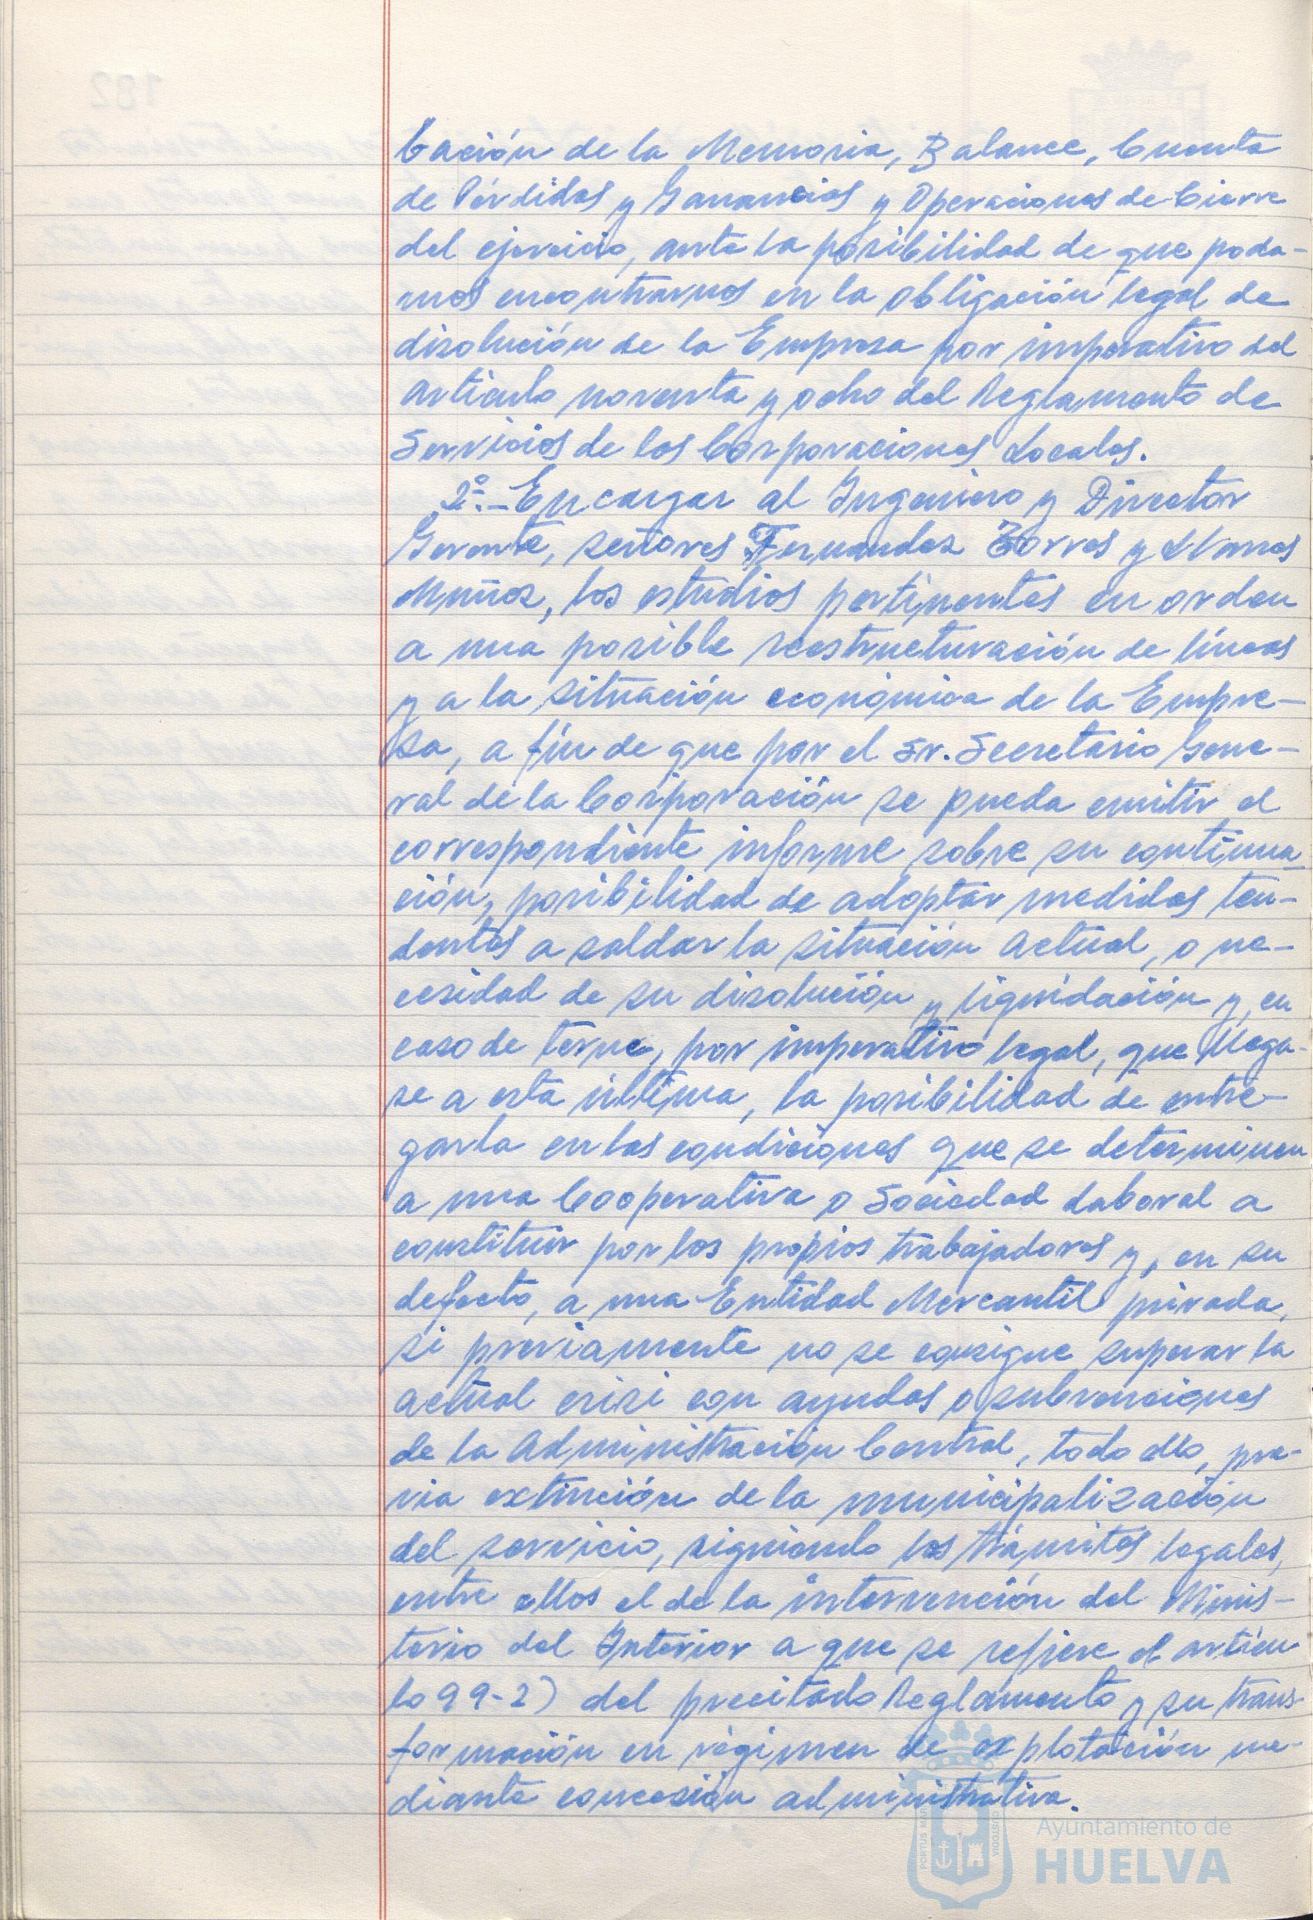 bación de la Memoria, Balance, Cuenta
de Pérdidas y Ganancias y Operaciones de Cierre
del ejercicio, ante la posibilidad de que poda-
mos encontrarnos en la obligación legal de
disolución de la Empresa por imperativo del
artículo noventa y ocho del Reglamento de
Servicios de las Corporaciones Locales.
2º.- Encargar al Ingeniero y Director
Gerente, señores Fernandez Torres y Llanes
Muñoz, los estudios pertinentes en orden
a una posible reestructuración de líneas
y a la situación económica de la Empre-
sa, a fin de que por el Sr. Secretario Gene-
ral de la Corporación se pueda emitir el
correspondiente informe sobre su continua
ción, posibilidad de adoptar medidas ten-
dentes a saldar la situación actual, o ne-
cesidad de su disolución y liquidación y, en
caso de por imperativo legal, que llega-
se a esta última, la posibilidad de entre-
garla en las condiciones que se determinen
a una Cooperativa o Sociedad Laboral a
constituir por los propios trabajadores y, en su
defecto, a una Entidad Mercantil privada,
si previamente no se consigue superar la
actual crisi con ayudas o subvenciones
de la Administración Central, todo ello, pre-
via extinción de la municipalización
del servicio, siguiendo los trámites legales,
entre ellos el de la intervención del Minis-
terio del Interior a que se refiere el artícu
lo 99-2) del precitado Reglamento y su trans-
formación en régimen de explotación me-
diante concesión administrativa.
Ayuntamiento de
HUELVA